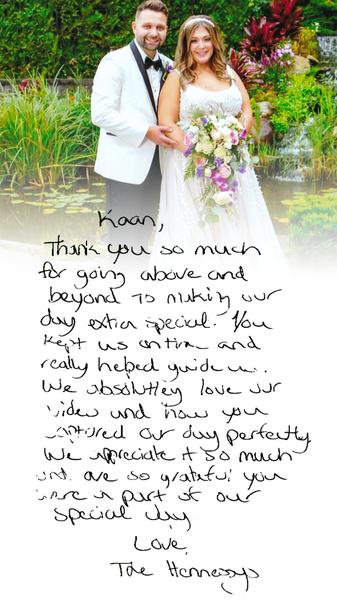 Kaan,
Thank you so much
for going above and
beyond to making our
day extra special. You
kept us on time and
really helped guide us.
We absolutley love our
video and how you
captured our day perfectly
We appreciate it so much
and are so grateful you
were a part of our
special day
Love,
The Hennessys